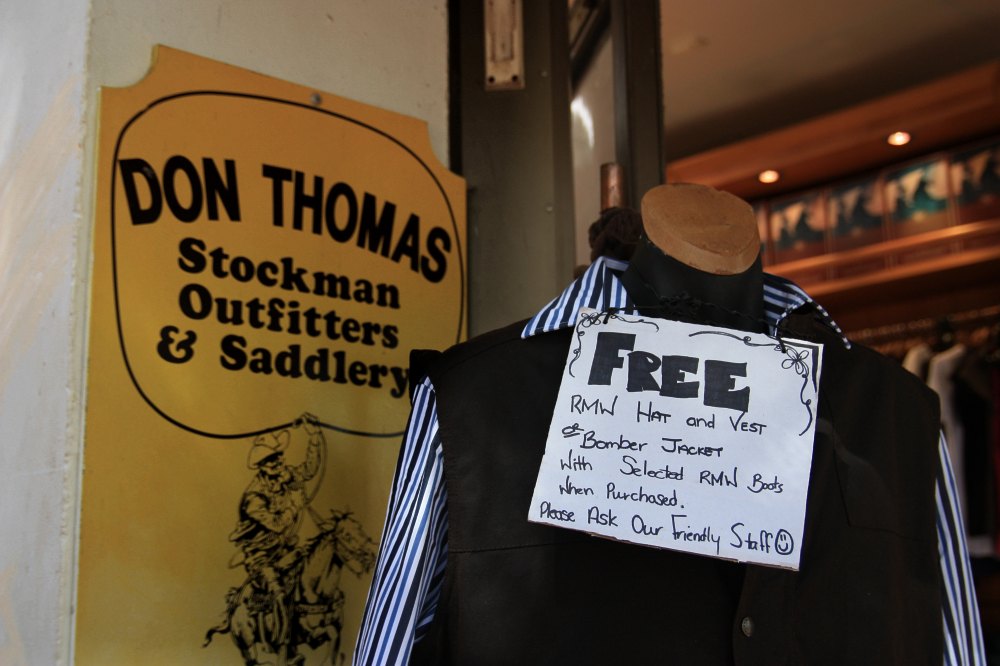 DON THOMAS
Stockman
Outfitters
& Saddlery
FREE
RMW HAT and VEST
or BOMBER JACKET
With Selected RMW Boots
When Purchased.
Please Ask Our Friendly Staff